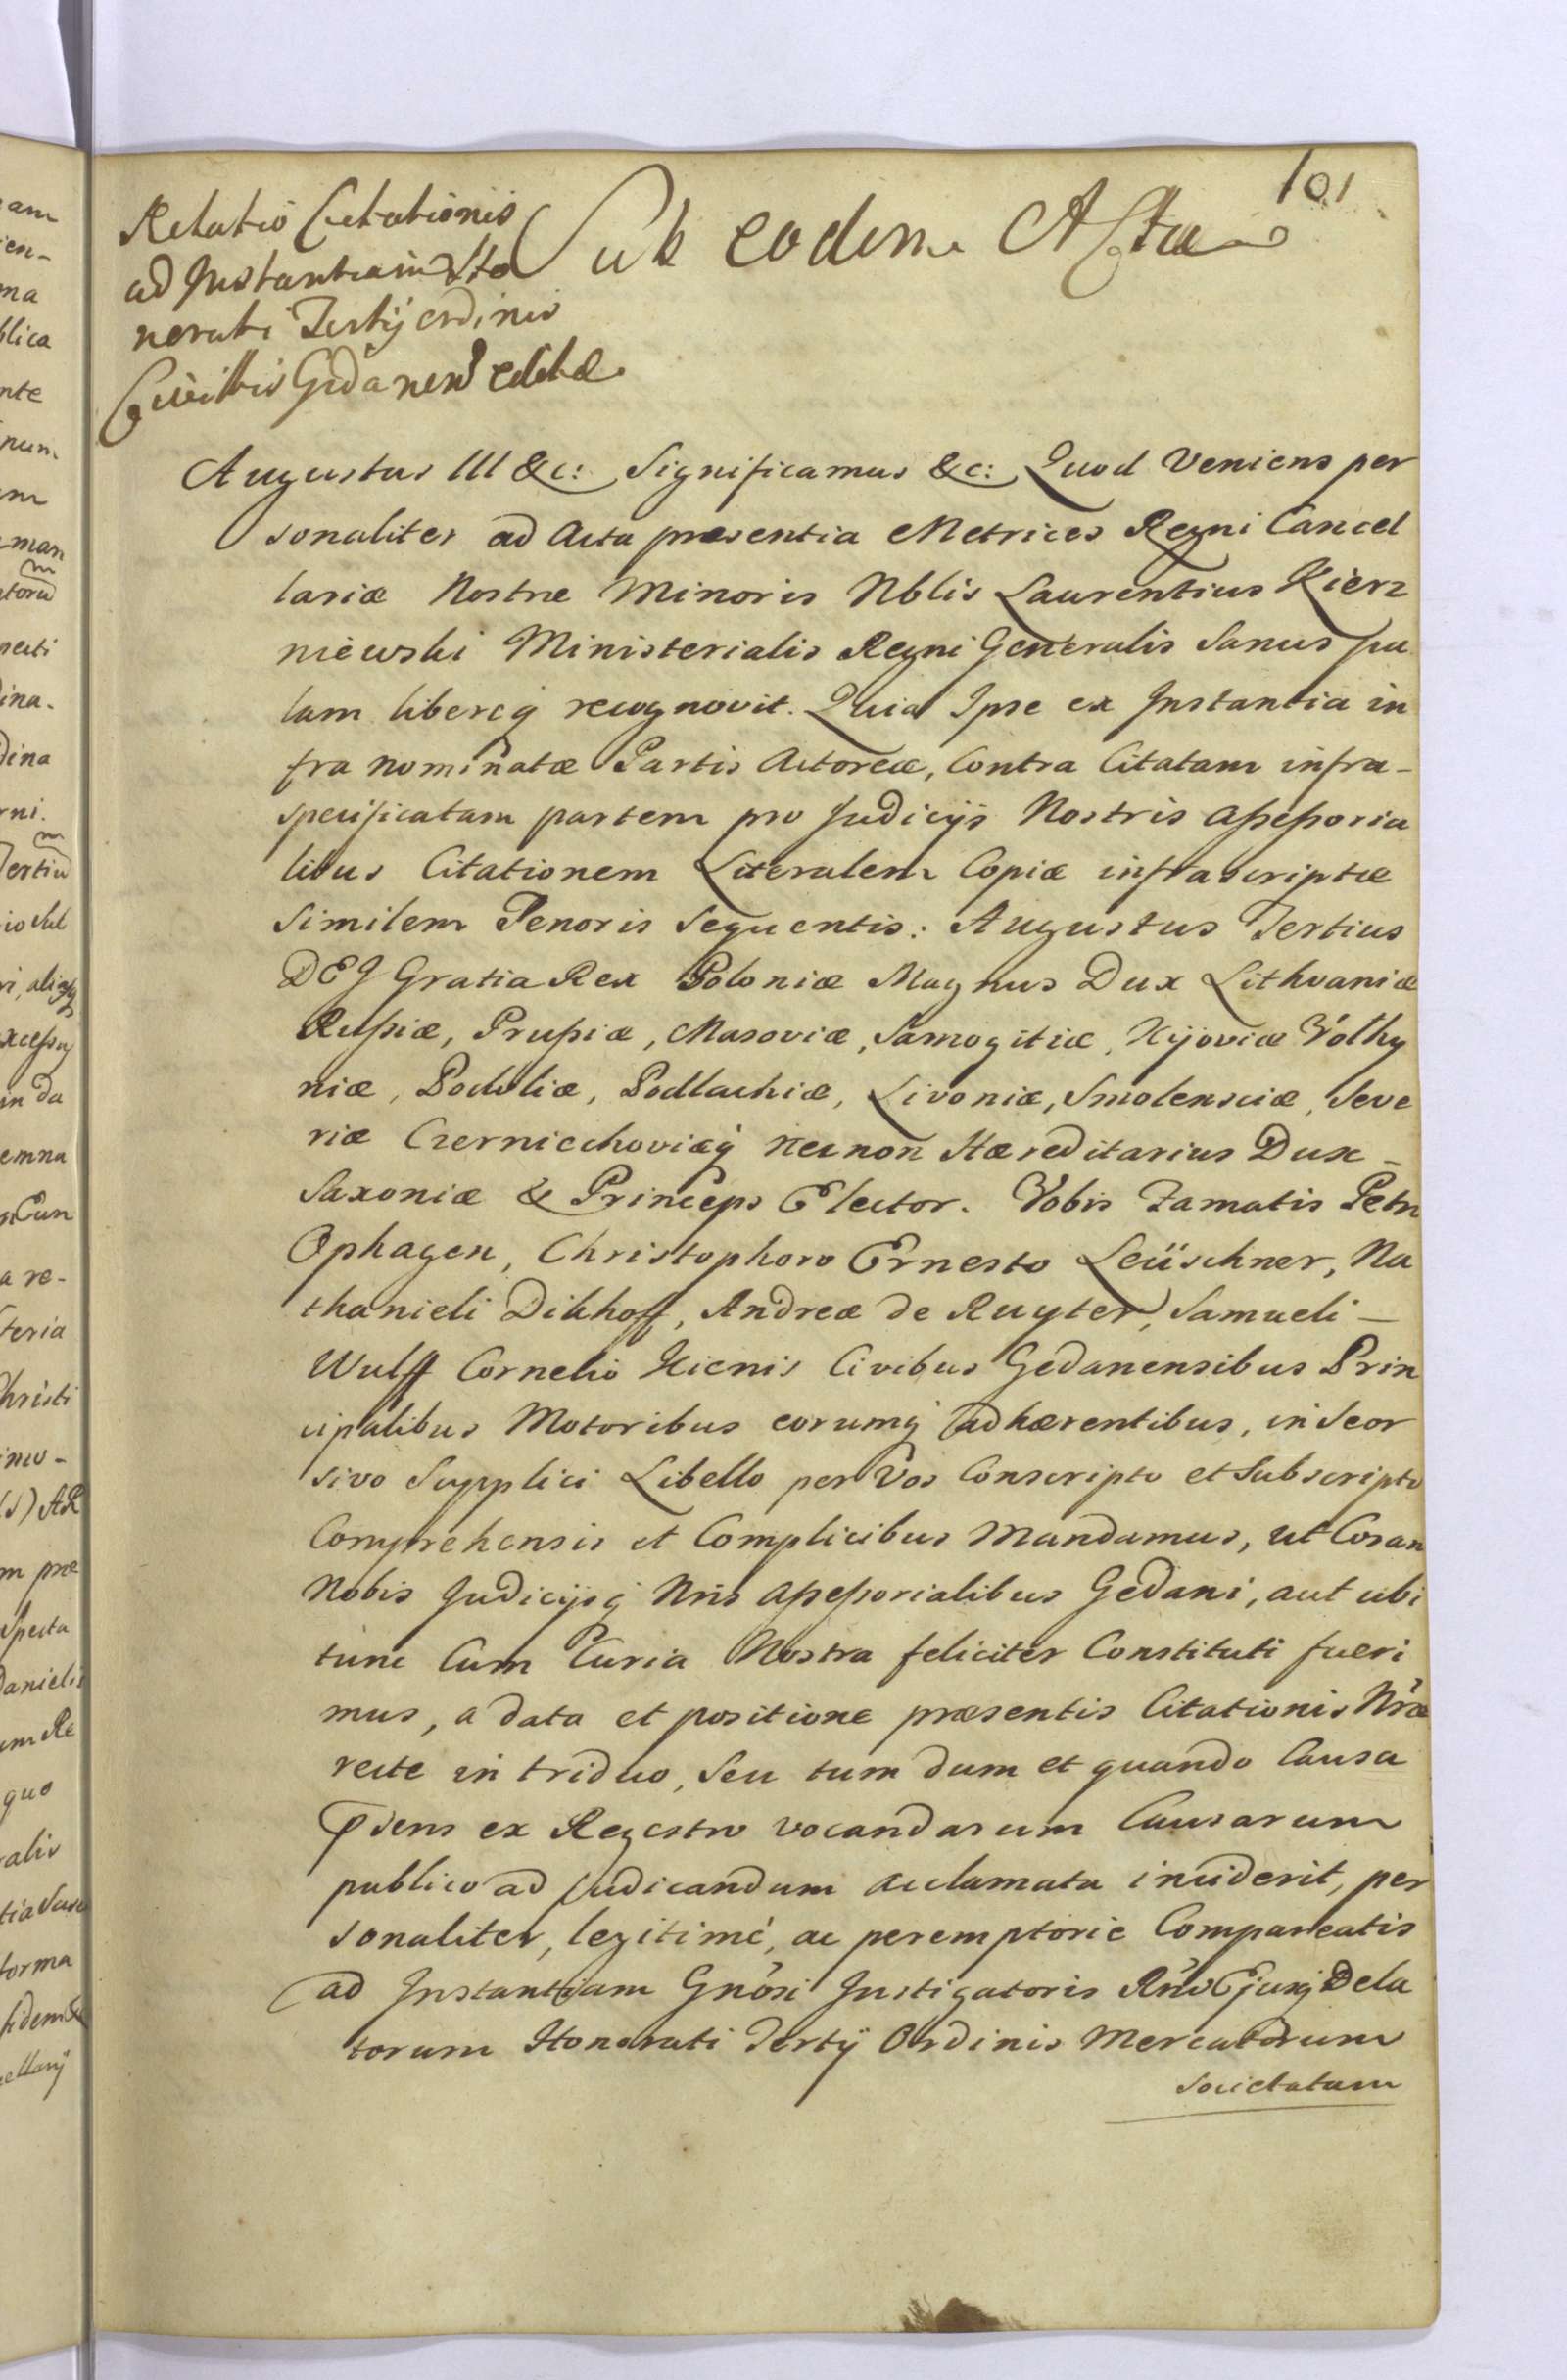 101
Relatio Citationis
ad Instantiam Ho
norati Tertij ordinis
Civittis Gedanens editæ
Sub eodem Actu
Augustus III &c: Significamus &c: Quod Veniens per
sonaliter ad Acta præsentia Metrices Regni Cancel
lariæ Nostræ Minoris Nblis Laurentius Kierz
niewski Ministerialis Regni Generalis Sanus pa
lam libereq recognovit. Quia Ipse ex Instantia in
fra nominatæ Partis Actoreæ, Contra Citatam infra-
specificatam partem pro Judicijs Nostris Assessoria
libus Citationem Literalem Copiæ infrascriptæ
Similem Tenoris Sequentis: Augustus Tertius
DEI Gratia Rex Poloniæ Magnus Dux Lithvaniæ
Russiæ, Prussiæ, Masoviæ, Samogitiæ, Kijoviæ Volhy
niæ, Podoliæ, Podlachiæ, Livoniæ, Smolensciæ, Seve
riæ Czerniechoviæq necnon Hæreditarius Dux -
Saxoniæ & Princeps Elector. Vobis Famatis Petro
Ophagen, Christophoro Ernesto Leüschner, Na
thanieli Dikhoff, Andreæ de Ruyter, Samueli -
Wulff Cornelio Kienis Civibus Gedanensibus Prin
cipalibus Motoribus eorumq adhærentibus, in Seor
sivo Supplici Libello per Vos Conscripto et Subscripto
Comprehensis et Complicibus Mandamus, ut Coram
Nobis Judicijsq Nris Assessorialibus Gedani, aut ubi
tunc Cum Curia Nostra feliciter Constituti fueri
mus, a data et positione præsentis Citationis Nræ
recte in triduo, Seu tum dum et quando Causa
Psens ex Regestro vocandarum Causarum
publico ad judicandum acclamata inciderit, per
sonaliter, legitimé, ac peremptorie Compareatis
ad Instantiam Gnosi Instigatoris Rni Ejusq Dela
torum Honorati Tertij Ordinis Mercatorum
Societatum